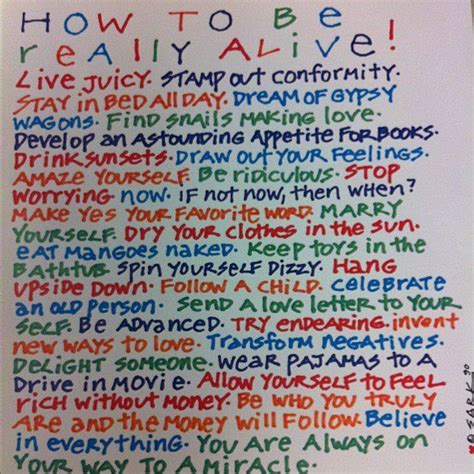 HOW TO Be
reALLY ALive!
Live Juicy. STAMP OUT CONFORMITY.
STAY in BED ALL DAY. DREAM OF GYPSY
WAGONS. FIND SNAILS MAKING LOVE.
Develop an Astounding Appetite For BOOKS.
Drink sunsets. DRAW OUT YOUR FEELINGS.
AMAZE YOURSELF. Be ridiculous. STOP
worrying. now. iF not now, then when?
MAKE Yes YOUR FAVORITE WORD. MARRY
YOURSELF. DRY YOUR CLOTHES in the sun.
eAT MANGOES nAKED. Keep TOYS in the
BATHTUB. SPIN YOURSELF DIZZY. HANG
UPSIDE DOWN. FOLLOW A CHILD. celeBRATE
an OLD person. SenD A Love letter TO YOUR
SELF. Be ADVANCED. TRY enDeARING. invent
new WAYS TO Love. Transform neGATIVES.
DeLIGHT someone. WEAR PAJAMAS TO A
Drive in movie. ALLOW YOURSELF TO Feel
rich WITHOUT money. Be WHO YOU TRULY
Are and the money will Follow. Believe
in everything. YOU Are ALWAYS on
YOUR WAY TO A MIRACLE.